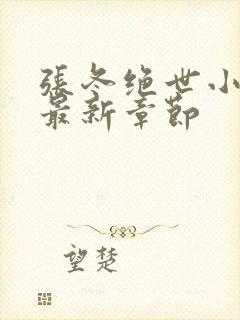 張冬绝世小
最新章節
望楚